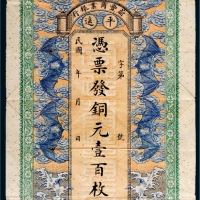 平遙
字第　號
憑票發銅元壹百枚
民國　年　月　日